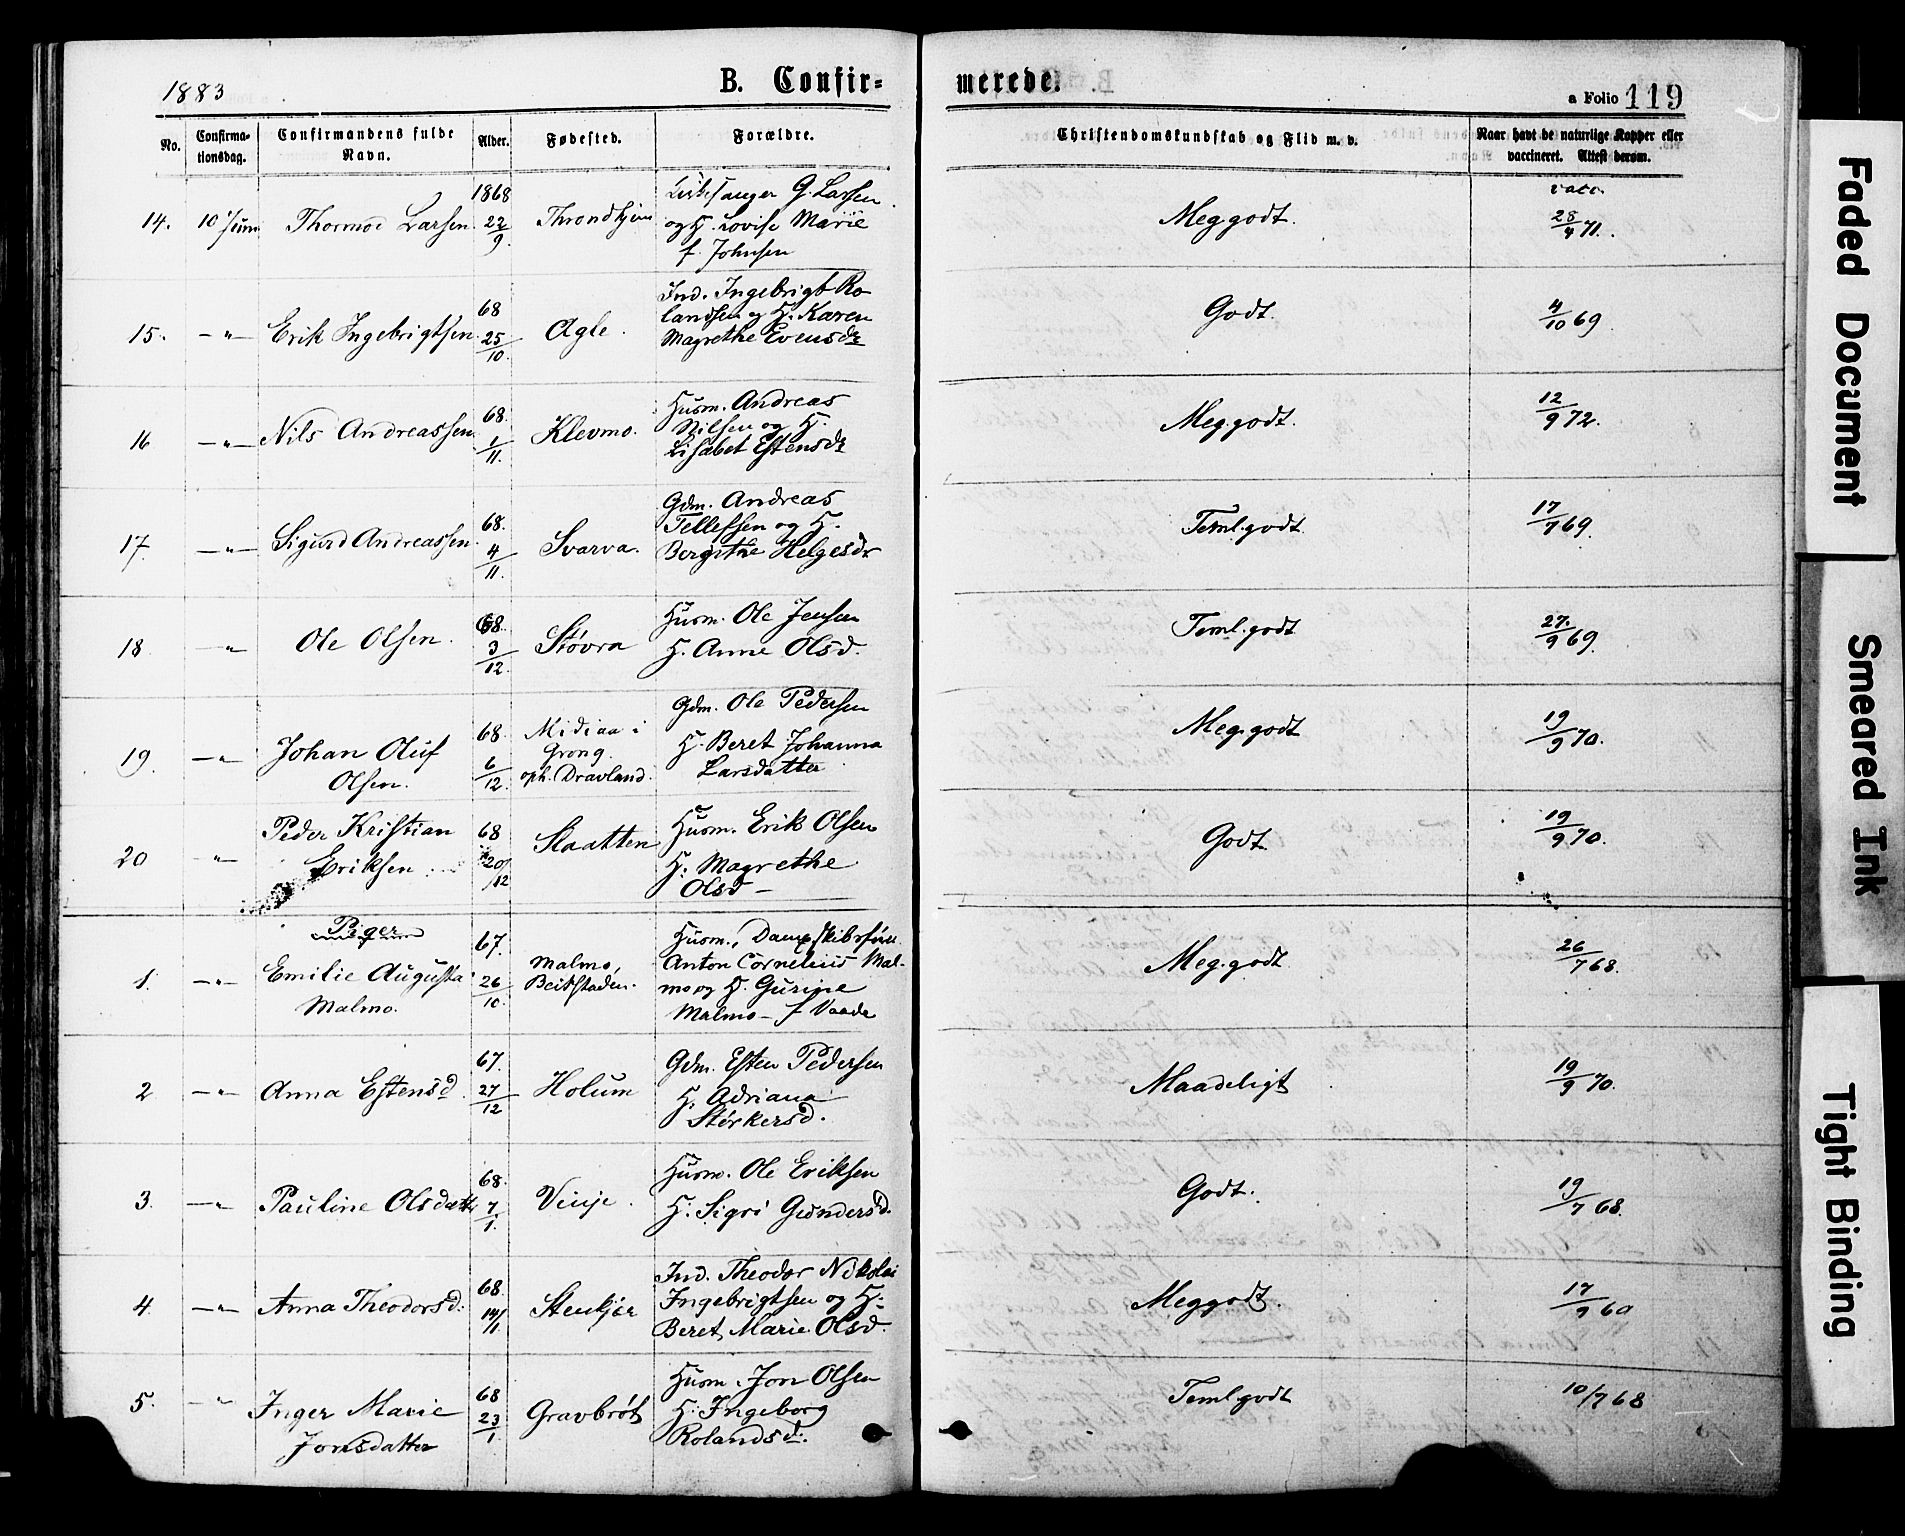 1883
B. Confir=
merede.
a Folio 119
No.
Confirma-
tionsdag.
Confirmandens fulde
Navn.
Alder.
Fødested.
Forældre.
Christendomskundskab og Flid m. v.
Naar havt de naturlige Kopper eller
vaccineret. Attest derom.
14. 10 Juni Thormod Larsen. 1868 22/9. Throndhjem
G. Larsen
og H. Lovise Marie
f. Johnsen
Meg godt.
vacc.
28/4 71.
15. —"— Erik Ingebrigtsen. 68 25/10. Agle.
Ind. Ingebrigt Ro-
landsen og H. Karen
Magrethe Evensdr
Godt.
4/10 69.
16 —"— Nils Andreassen. 68. 1/11. Klevmo.
Husm. Andreas
Nilsen og H.
Lisabet Estensdr
Meg. godt.
12/9 72.
17. —"— Sigurd Andreassen. 68. 4/11. Svarva.
Gdm. Andreas
Tellefsen og H.
Bergithe Helgesdr
Teml. godt.
17/7 69.
18. —"— Ole Olsen. 68. 3/12. Støvra
Husm. Ole Jensen
H. Anne Olsd.
Teml. godt
27./9 69.
19. —"— Johan Oluf
Olsen.
68. 6/12.
Midiaa i
Grong.
oph. Dravland.
Gdm. Ole Pedersen
H. Beret Johanna
Larsdatter
Meg. godt
19/9 70.
20 —"— Peder Kristian
Eriksen
68 20/12
Slaatten
Husm. Erik Olsen
H. Magrethe
Olsd —
Godt
19/9 70.
Piger
1. —"— Emilie Augusta
Malmo.
67. 26/10.
Malmo,
Beitstaden.
Husm., Dampskibsfører
Anton Cornelius Mal-
mo og H. Gurine
Malmo — f Vaade
Meg. godt
26/7 68.
2 —"— Anna Estensd. 67. 27/12 Holum
Gdm. Esten Pedersen
H. Adriana
Størkersd.
Maadeligt
19/9 70.
3. —"— Pauline Olsdatter 68. 7/1. Veije.
Husm. Ole Eriksen
H. Sigri Gundersd.
Godt.
19/7 68.
4. —"— Anna Theodorsd. 68. 14/1. Stenkjær
Ind. Theodor Nikolai
Ingebrigtsen og H.
Beret Marie Olsd.
Meg godt.
17/9 69
5. —"— Inger Marie
Jonsdatter
68 23/1.
Gravbrøt
Husm. Jon Olsen
H. Ingeborg
Rolandsd.
Teml. godt
10/7 68
Faded Document
Smeared Ink
Tight Binding